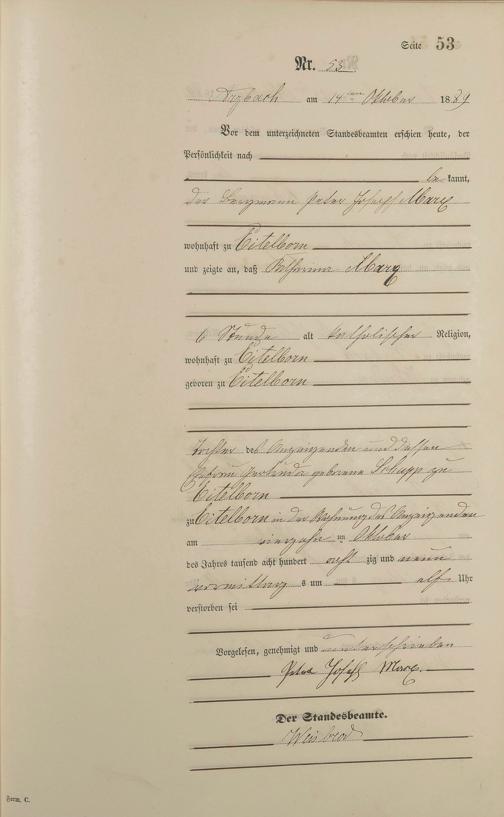 Seite 53
Nr. 53
Arzbach am 14ten Oktober 1889
Vor dem unterzeichneten Standesbeamten erschien heute, der
Persönlichkeit nach
be kannt,
der Bergmann Peter Joseph Marx
wohnhaft zu Eitelborn
und zeigte an, daß Katharina Marx
6 Stunde alt katholischer Religion,
wohnhaft zu Eitelborn
geboren zu Eitelborn
Tochter des Anzeigenden und dessen
Ehefrau Gertruda geborene Schupp zu
Eitelborn
zu Eitelborn in der Wohnung des Anzeigenden
am vierzehn ten Oktober
des Jahrs tausend acht hundert acht zig und neun
vormittag s um elf Uhr
verstorben sei
Vorgelesen, genehmigt und unterschrieben
Peter Joseph Marx.
Der Standesbeamte.
Weisbrod
Form. C.